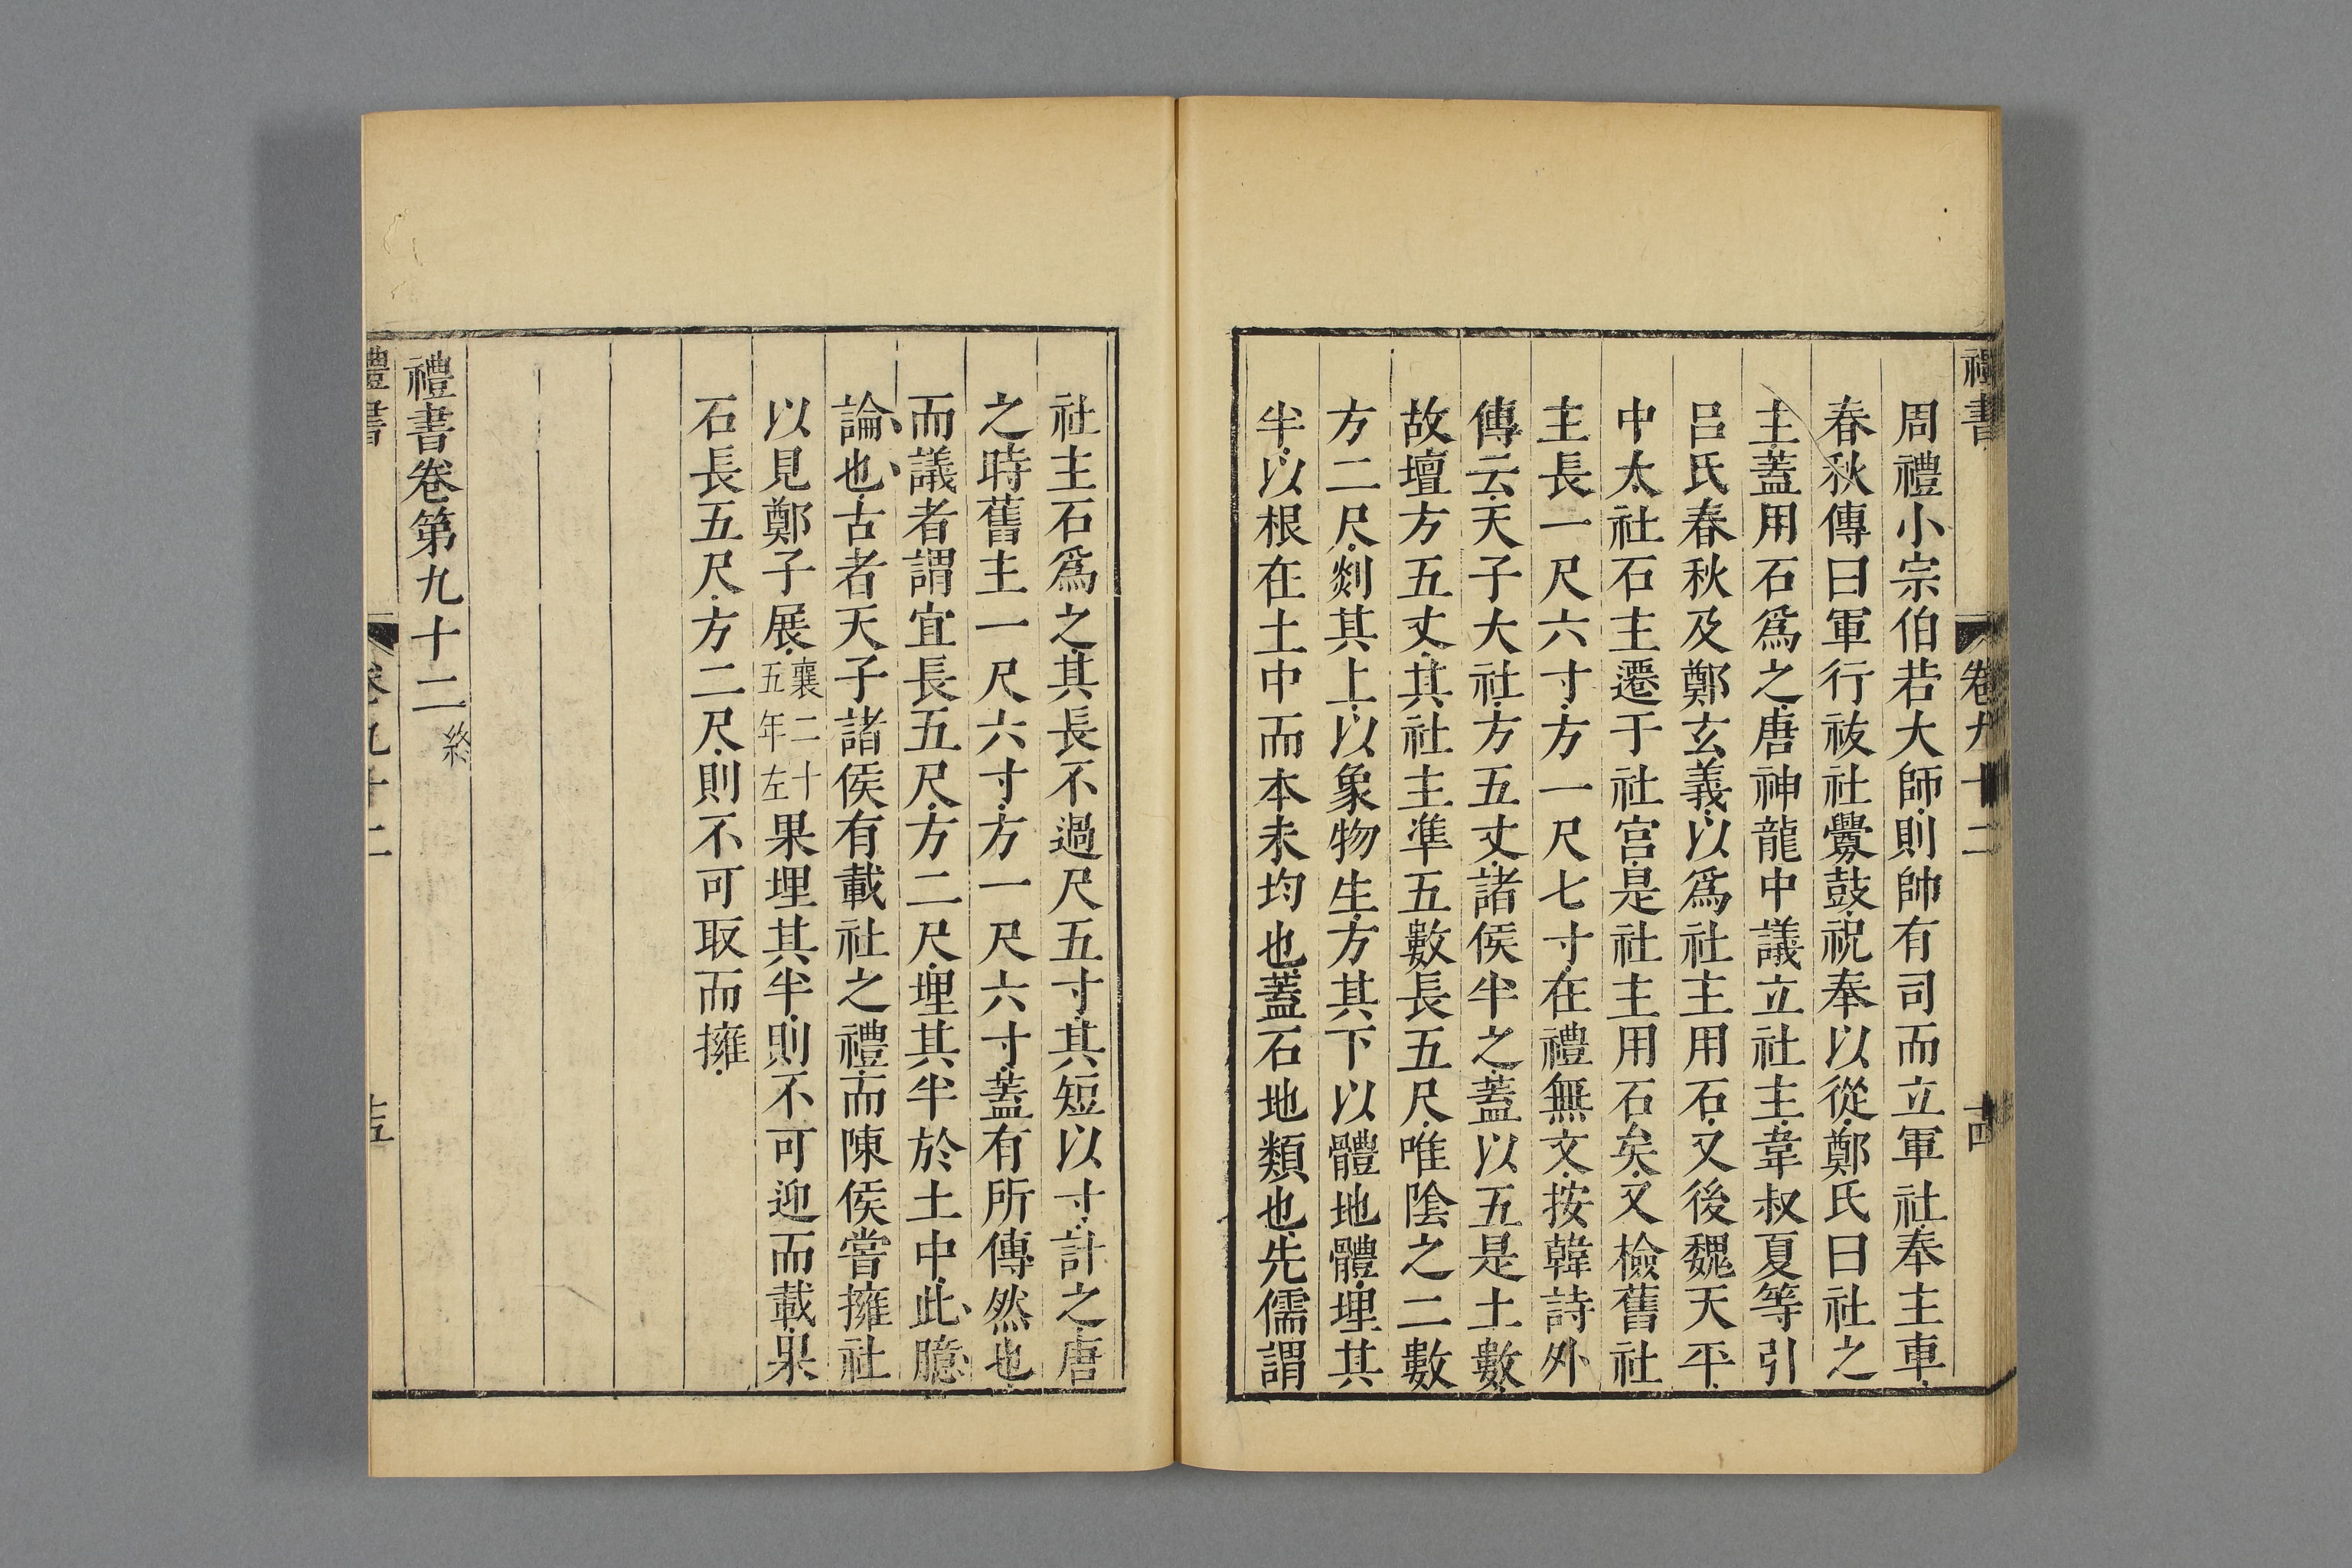 禮書 卷九十二 十四
周禮小宗伯若大師則帥有司而立軍社奉主車
春秋傳曰軍行祓社釁鼓祝奉以從鄭氏曰社之
主蓋用石爲之唐神龍中議立社主韋叔夏等引
呂氏春秋及鄭玄義以爲社主用石又後魏天平
中太社石主遷于社宮是社主用石矣又檢舊社
主長一尺六寸方一尺七寸在禮無文按韓詩外
傳云天子大社方五丈諸侯半之蓋以五是土數
故壇方五丈其社主準五數長五尺唯陰之二數
方二尺剡其上以象物生方其下以體地體埋其
半以根在土中而本末均也蓋石地類也先儒謂
社主石爲之其長不過尺五寸其短以寸計之唐
之時舊主一尺六寸方一尺六寸蓋有所傳然也
而議者謂宜長五尺方二尺埋其半於土中此臆
論也古者天子諸侯有載社之禮而陳侯嘗擁社
以見鄭子展襄二十五年左果埋其半則不可迎而載果
石長五尺方二尺則不可取而擁
禮書卷第九十二終
禮書 卷九十二 十五